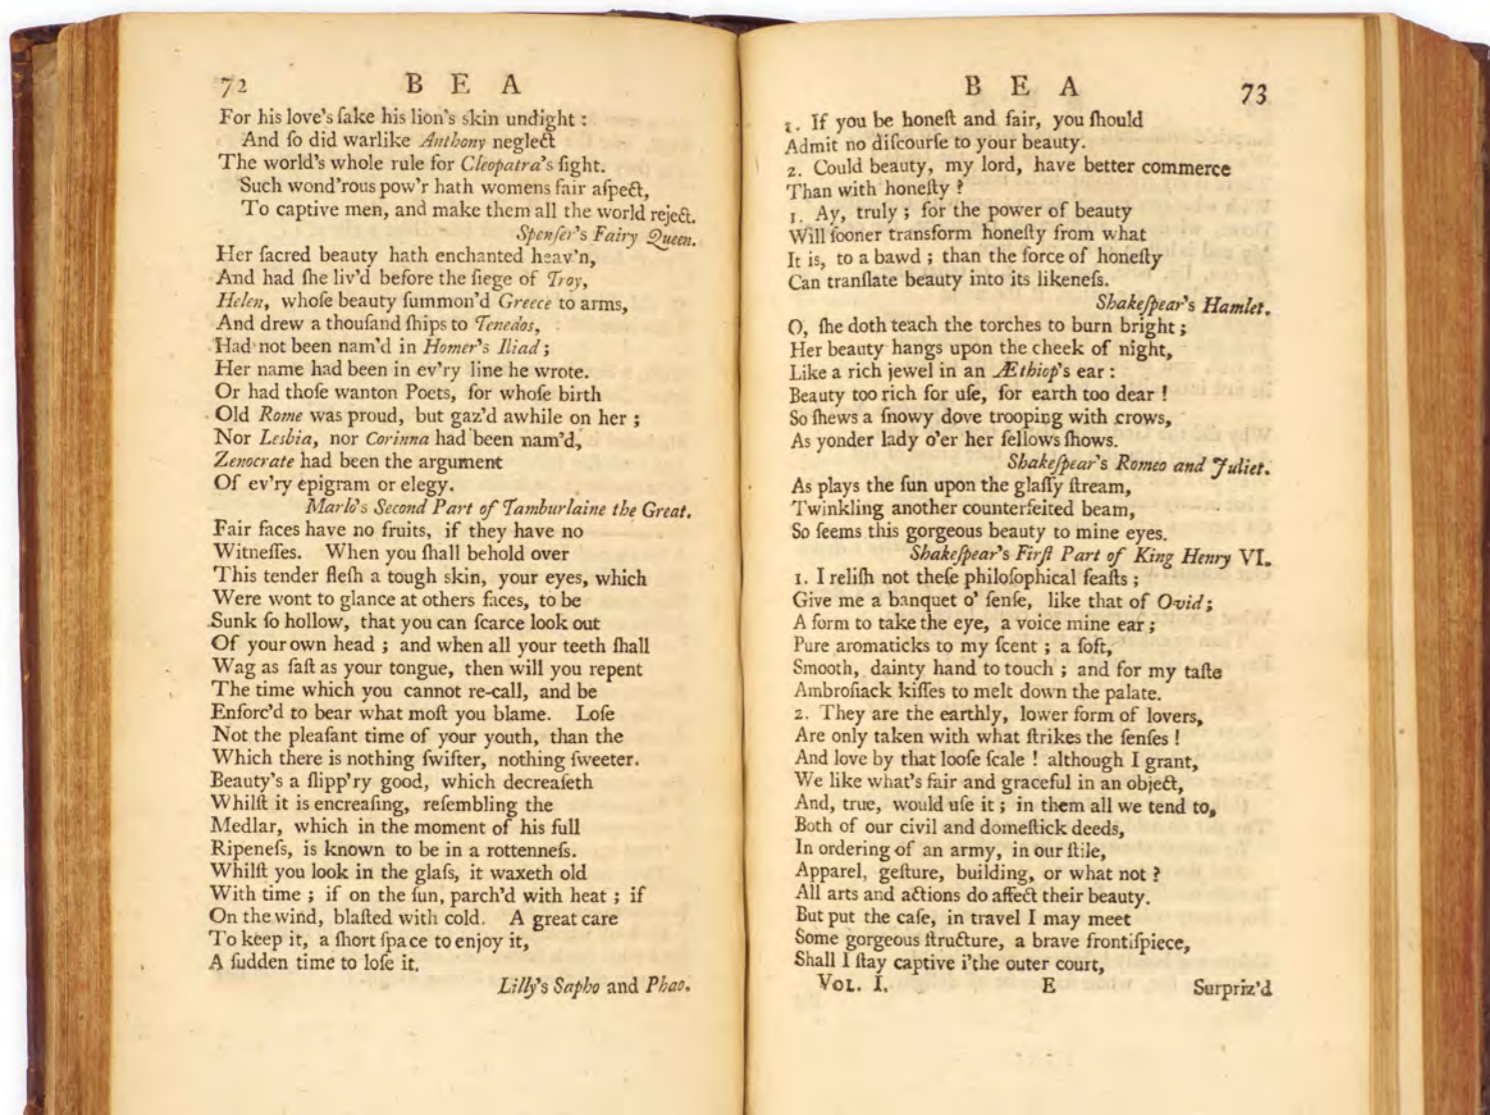 72 B E A
For his love's ſake his lion's skin undight :
And ſo did warlike Anthony neglect
The world's whole rule for Cleopatra's ſight.
Such wond'rous pow'r hath womens fair aſpect,
To captive men, and make them all the world reject.
Spenſer's Fairy Queen.
Her ſacred beauty hath enchanted heav'n,
And had ſhe liv'd before the ſiege of Troy,
Helen, whoſe beauty ſummon'd Greece to arms,
And drew a thouſand ſhips to Tenedos,
Had not been nam'd in Homer's Iliad ;
Her name had been in ev'ry line he wrote.
Or had thoſe wanton Poets, for whoſe birth
Old Rome was proud, but gaz'd awhile on her ;
Nor Lesbia, nor Corinna had been nam'd,
Zenocrate had been the argument
Of ev'ry epigram or elegy.
Marlo's Second Part of Tamburlaine the Great.
Fair faces have no fruits, if they have no
Witneſſes. When you ſhall behold over
This tender fleſh a tough skin, your eyes, which
Were wont to glance at others faces, to be
Sunk ſo hollow, that you can ſcarce look out
Of your own head ; and when all your teeth ſhall
Wag as faſt as your tongue, then will you repent
The time which you cannot re-call, and be
Enforc'd to bear what moſt you blame. Loſe
Not the pleaſant time of your youth, than the
Which there is nothing ſwifter, nothing ſweeter.
Beauty's a ſlipp'ry good, which decreaſeth
Whilſt it is encreaſing, reſembling the
Medlar, which in the moment of his full
Ripeneſs, is known to be in a rottenneſs.
Whilſt you look in the glaſs, it waxeth old
With time ; if on the ſun, parch'd with heat ; if
On the wind, blaſted with cold. A great care
To keep it, a ſhort ſpace to enjoy it,
A ſudden time to loſe it.
Lilly's Sapho and Phao.
B E A 73
1. If you be honeſt and fair, you ſhould
Admit no diſcourſe to your beauty.
2. Could beauty, my lord, have better commerce
Than with honeſty ?
1. Ay, truly ; for the power of beauty
Will ſooner transform honeſty from what
It is, to a bawd ; than the force of honeſty
Can tranſlate beauty into its likeneſs.
Shakeſpear's Hamlet.
O, ſhe doth teach the torches to burn bright ;
Her beauty hangs upon the cheek of night,
Like a rich jewel in an Æthiop's ear :
Beauty too rich for uſe, for earth too dear !
So ſhews a ſnowy dove trooping with crows,
As yonder lady o'er her fellows ſhows.
Shakeſpear's Romeo and Juliet.
As plays the ſun upon the glaſſy ſtream,
Twinkling another counterfeited beam,
So ſeems this gorgeous beauty to mine eyes.
Shakeſpear's Firſt Part of King Henry VI.
1. I reliſh not theſe philoſophical feaſts ;
Give me a banquet o' ſenſe, like that of Ovid ;
A form to take the eye, a voice mine ear ;
Pure aromaticks to my ſcent ; a ſoft,
Smooth, dainty hand to touch ; and for my taſte
Ambroſiack kiſſes to melt down the palate.
2. They are the earthly, lower form of lovers,
Are only taken with what ſtrikes the ſenſes !
And love by that looſe ſcale ! although I grant,
We like what's fair and graceful in an object,
And, true, would uſe it ; in them all we tend to,
Both of our civil and domeſtick deeds,
In ordering of an army, in our ſtile,
Apparel, geſture, building, or what not ?
All arts and actions do affect their beauty.
But put the caſe, in travel I may meet
Some gorgeous ſtructure, a brave frontiſpiece,
Shall I ſtay captive i'the outer court,
VOL. I. E Surpriz'd